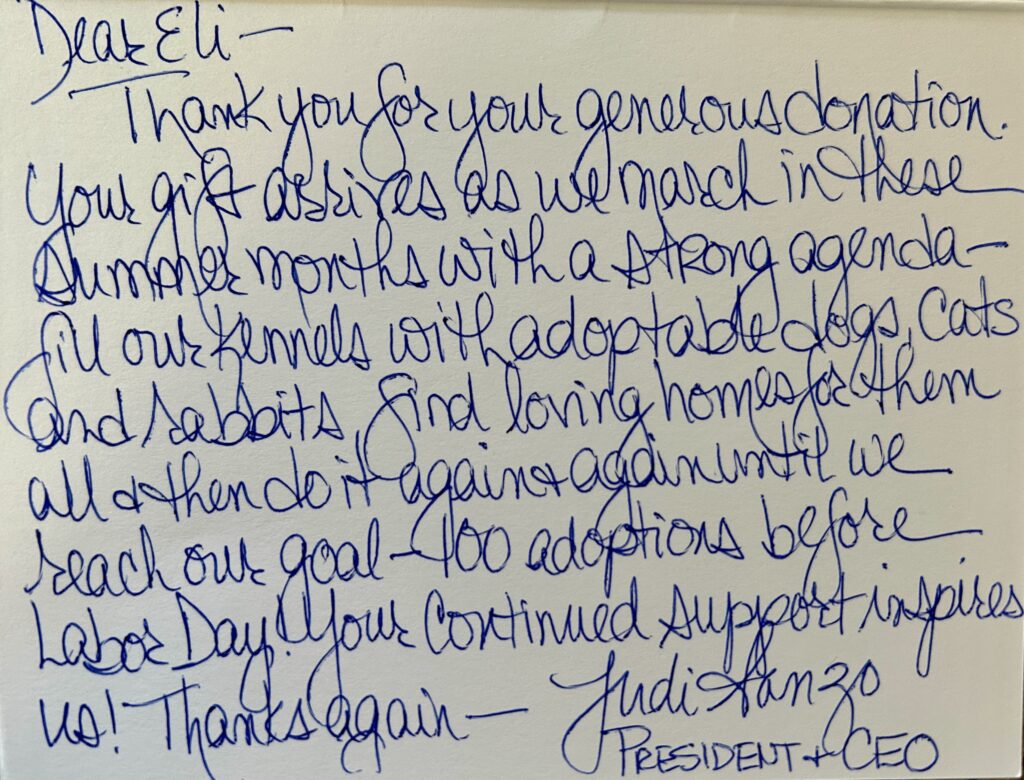 Dear Eli —
Thank you for your generous donation.
Your gift arrives as we march in these
summer months with a strong agenda —
fill our kennels with adoptable dogs, cats
and rabbits, find loving homes for them
all & then do it again & again until we
reach our goal — 100 adoptions before
Labor Day! Your continued support inspires
us! Thanks again — Judi
PRESIDENT & CEO